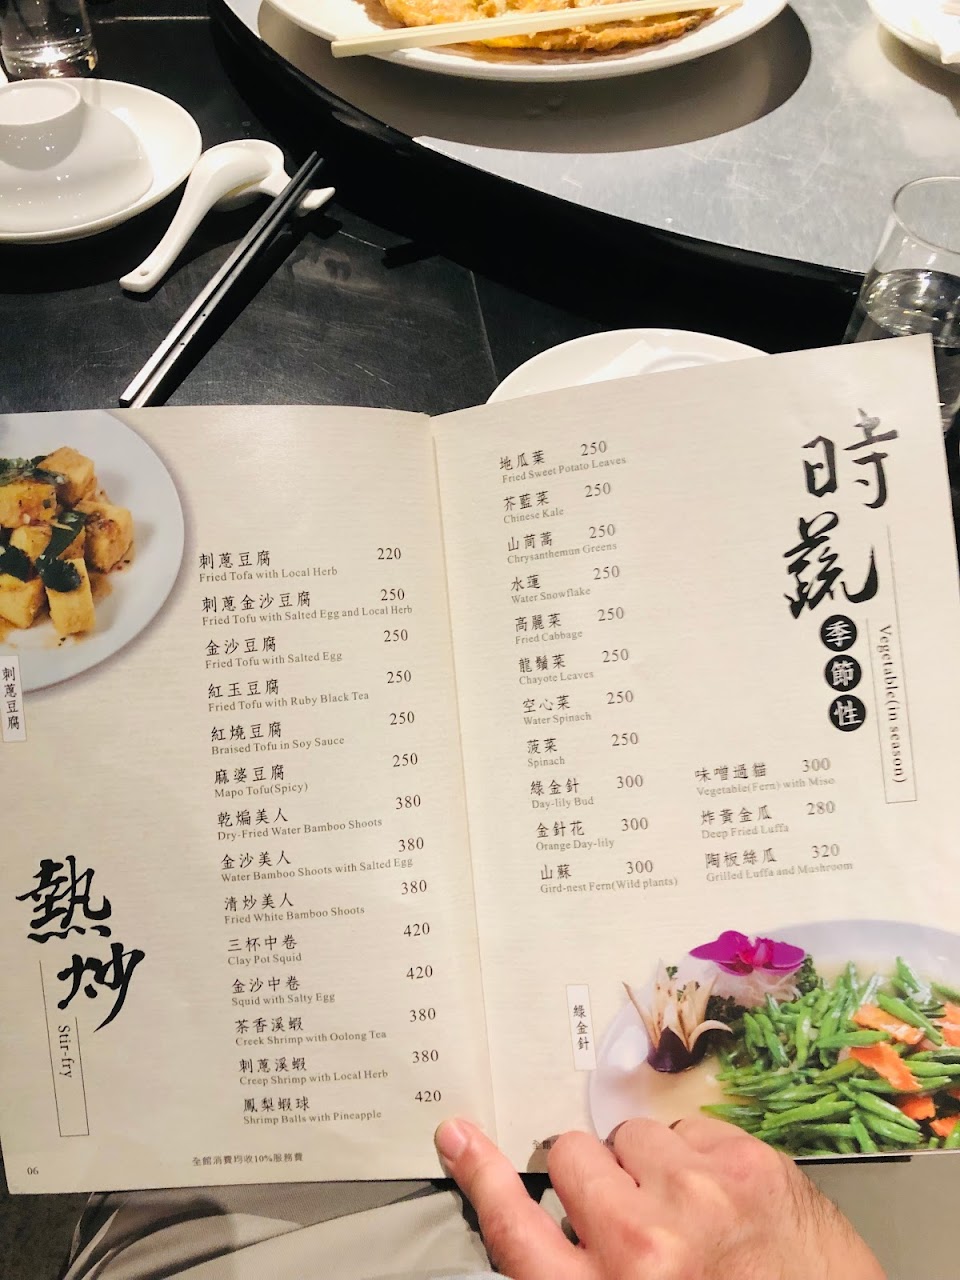 刺蔥豆腐
熱炒
Stir-fry
刺蔥豆腐 220
Fried Tofa with Local Herb
刺蔥金沙豆腐 250
Fried Tofu with Salted Egg and Local Herb
金沙豆腐 250
Fried Tofu with Salted Egg
紅玉豆腐 250
Fried Tofu with Ruby Black Tea
紅燒豆腐 250
Braised Tofu in Soy Sauce
麻婆豆腐 250
Mapo Tofu(Spicy)
乾煸美人 380
Dry-Fried Water Bamboo Shoots
金沙美人 380
Water Bamboo Shoots with Salted Egg
清炒美人 380
Fried White Bamboo Shoots
三杯中卷 420
Clay Pot Squid
金沙中卷 420
Squid with Salty Egg
茶香溪蝦 380
Creek Shrimp with Oolong Tea
刺蔥溪蝦 380
Creep Shrimp with Local Herb
鳳梨蝦球 420
Shrimp Balls with Pineapple
06
全館消費均收10%服務費
時蔬
季節性
Vegetable(in season)
地瓜葉 250
Fried Sweet Potato Leaves
芥藍菜 250
Chinese Kale
山茼蒿 250
Chrysanthemun Greens
水蓮 250
Water Snowflake
高麗菜 250
Fried Cabbage
龍鬚菜 250
Chayote Leaves
空心菜 250
Water Spinach
菠菜 250
Spinach
綠金針 300
Day-lily Bud
金針花 300
Orange Day-lily
山蘇 300
Gird-nest Fern(Wild plants)
味噌過貓 300
Vegetable(Fern) with Miso
炸黃金瓜 280
Deep Fried Luffa
陶板絲瓜 320
Grilled Luffa and Mushroom
綠金針
全館